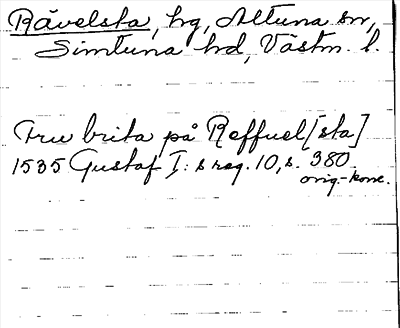 Rävelsta, hg, Altuna sn,
Simtuna hd, Västm. l.
Fru brita på Reffuel[sta]
1535 Gustaf I:s reg. 10, s. 380.
orig.-konc.